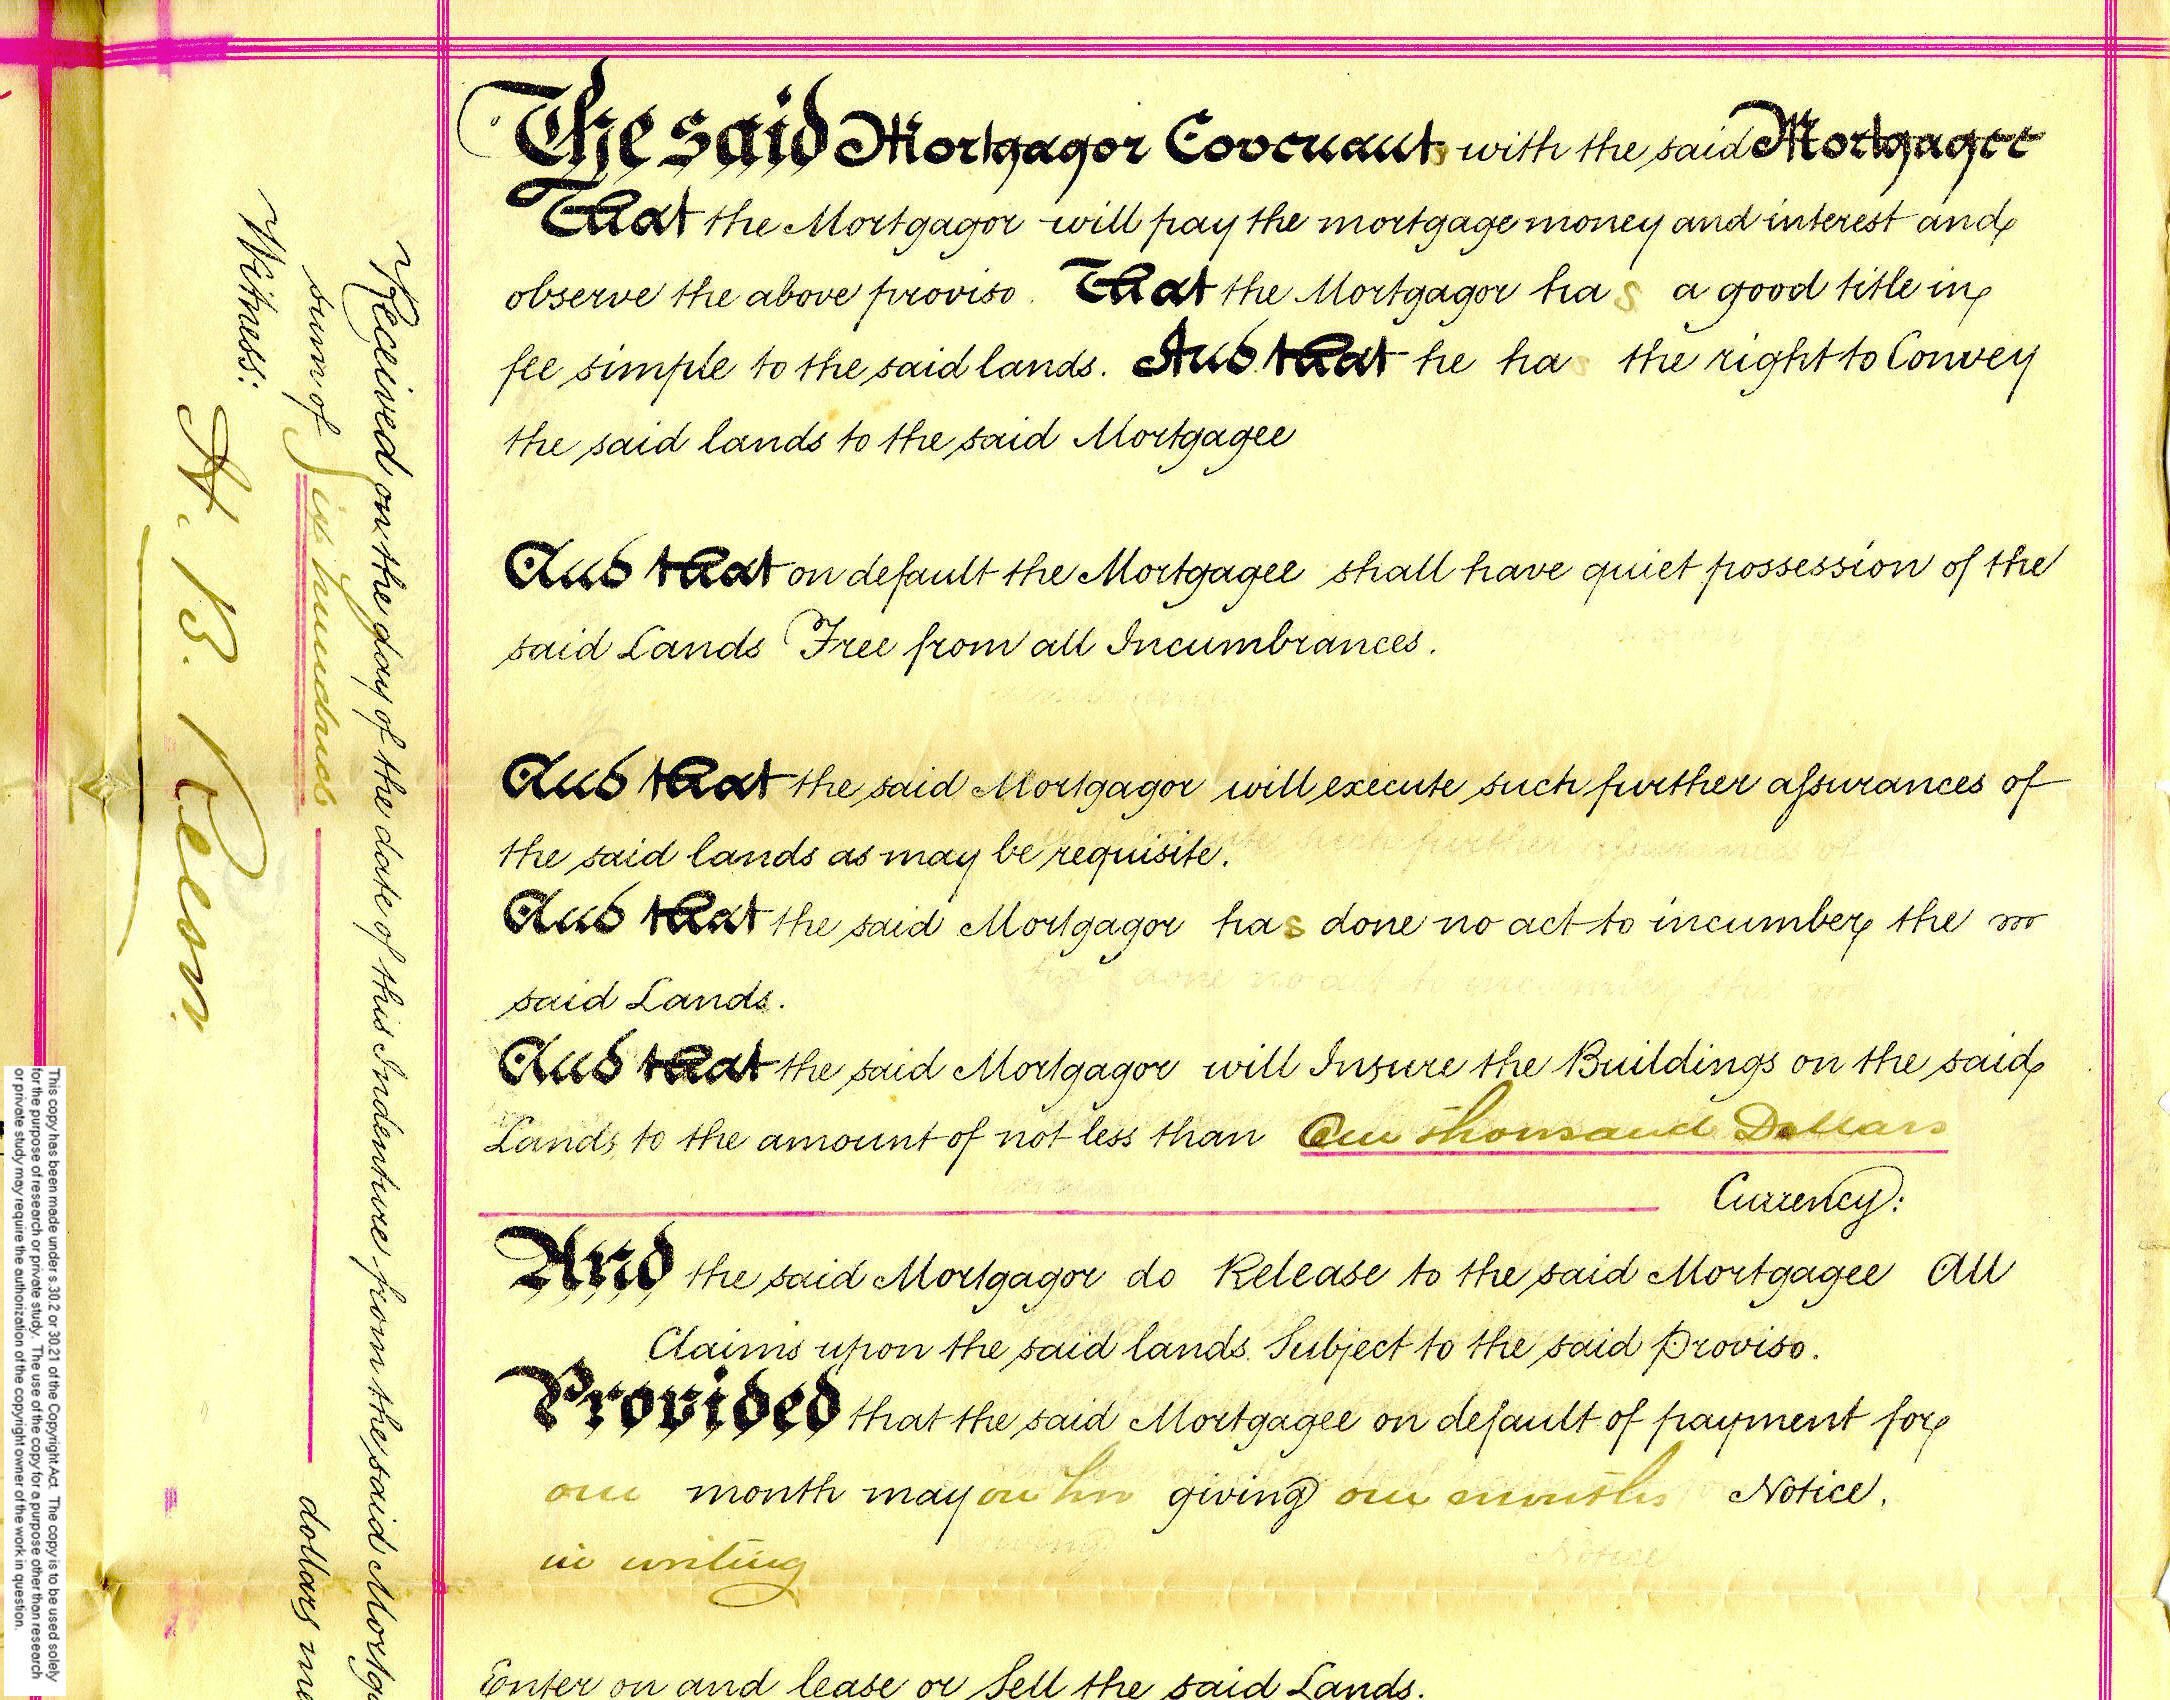 The said Mortgagor Covenants with the said Mortgagee
That the Mortgagor will pay the mortgage money and interest and
observe the above proviso. That the Mortgagor has a good title in
fee simple to the said lands. And that he has the right to Convey
the said lands to the said Mortgagee
And that on default the Mortgagee shall have quiet possession of the
said Lands Free from all Incumbrances.
And that the said Mortgagor will execute such further assurances of
the said lands as may be requisite.
And that the said Mortgagor has done no act to incumber the
said Lands.
And that the said Mortgagor will Insure the Buildings on the said
Lands to the amount of not less than One Thousand Dollars
Currency:
And the said Mortgagor do Release to the said Mortgagee All
Claims upon the said lands Subject to the said Proviso.
Provided that the said Mortgagee on default of payment for
one month may on giving one months Notice.
in writing
Enter on and lease or Sell the said Lands.
Received on the day of the date of this Indenture from the said
sum of Six hundred dollars
Witness:
A. B. Keen
This copy has been made under s.30.2 or 30.21 of the Copyright Act. The copy is to be used solely
for the purpose of research or private study. The use of the copy for a purpose other than research
or private study may require the authorization of the copyright owner of the work in question.